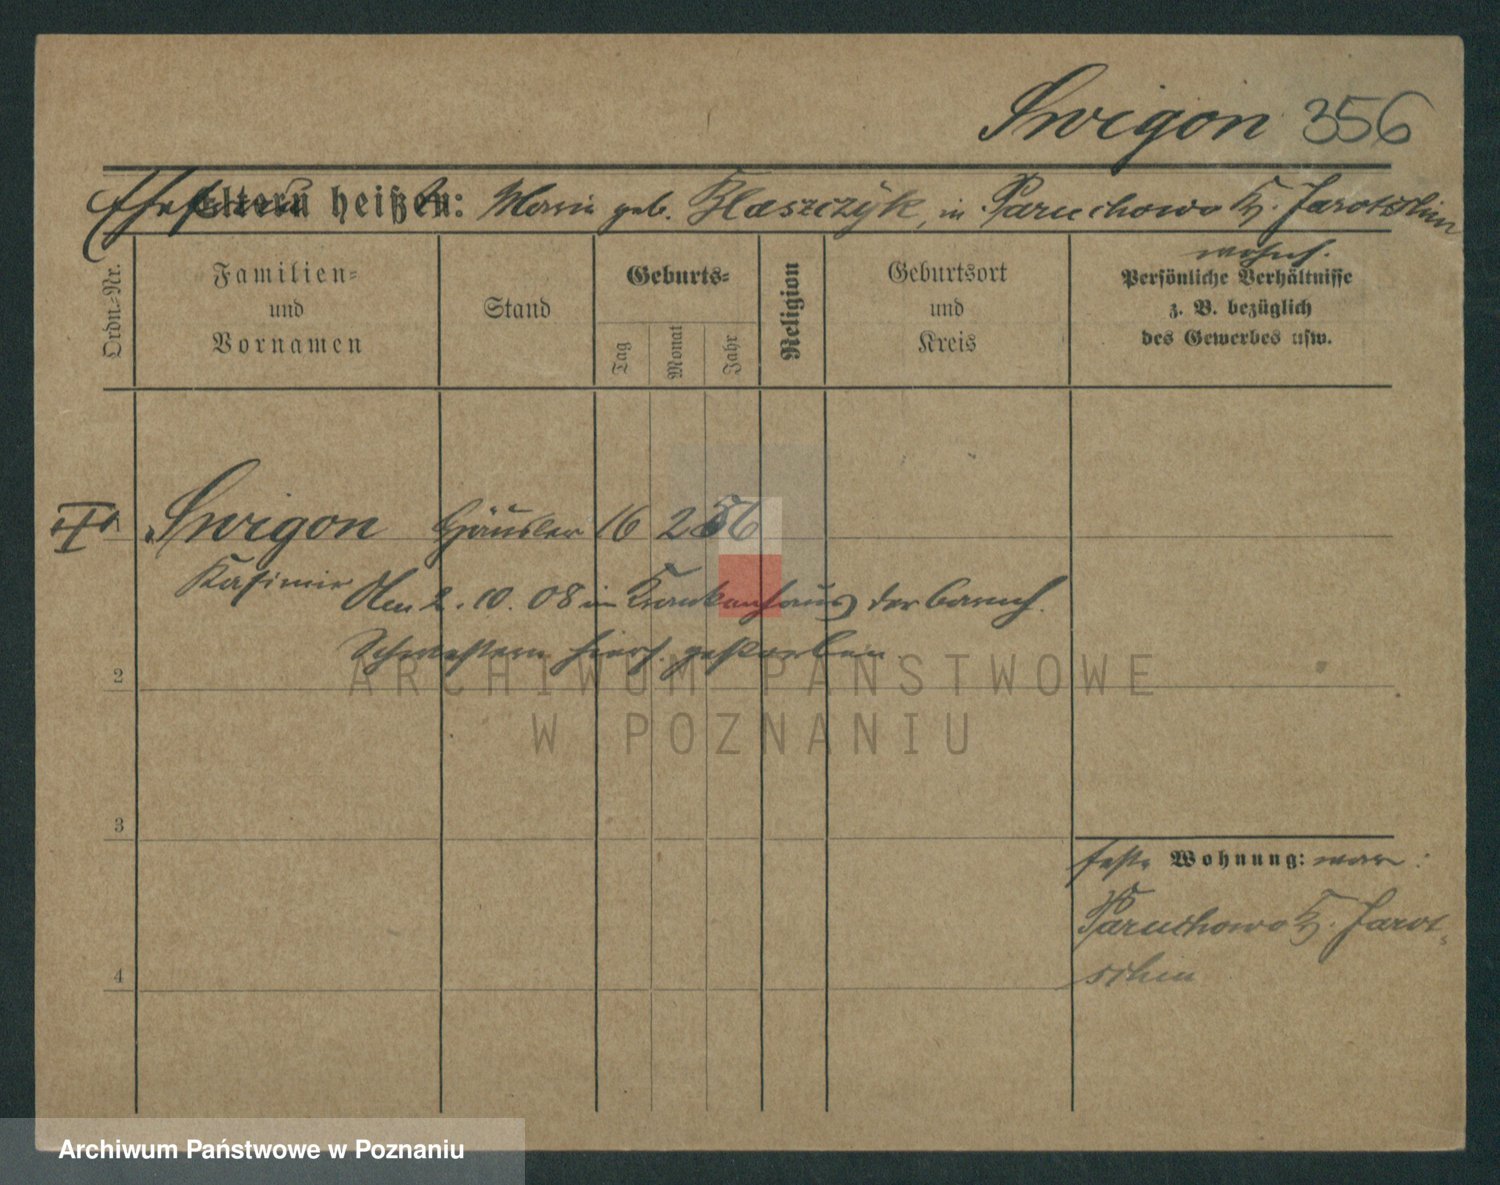 Swigon 356
Ehefrau Eltern heißen: Marie geb. Blaszczyk, in Paruchowo Kr. Jarotschin
wohnh.
Ordn.-Nr.
Familien-
und
Vornamen
Stand
Geburts-
Tag
Monat
Jahr
Religion
Geburtsort
und
Kreis
Persönliche Verhältnisse
z. B. bezüglich
des Gewerbes usw.
1 Swigon Häusler 16 2 56
Kasimir Am 2. 10. 08 im Krankenhaus der barmh.
Schwestern hiers. gestorben
2
ARCHIWUM PAŃSTWOWE
W POZNANIU
3
feste Wohnung: war:
Paruchowo Kr. Jarot-
schin
4
Archiwum Państwowe w Poznaniu